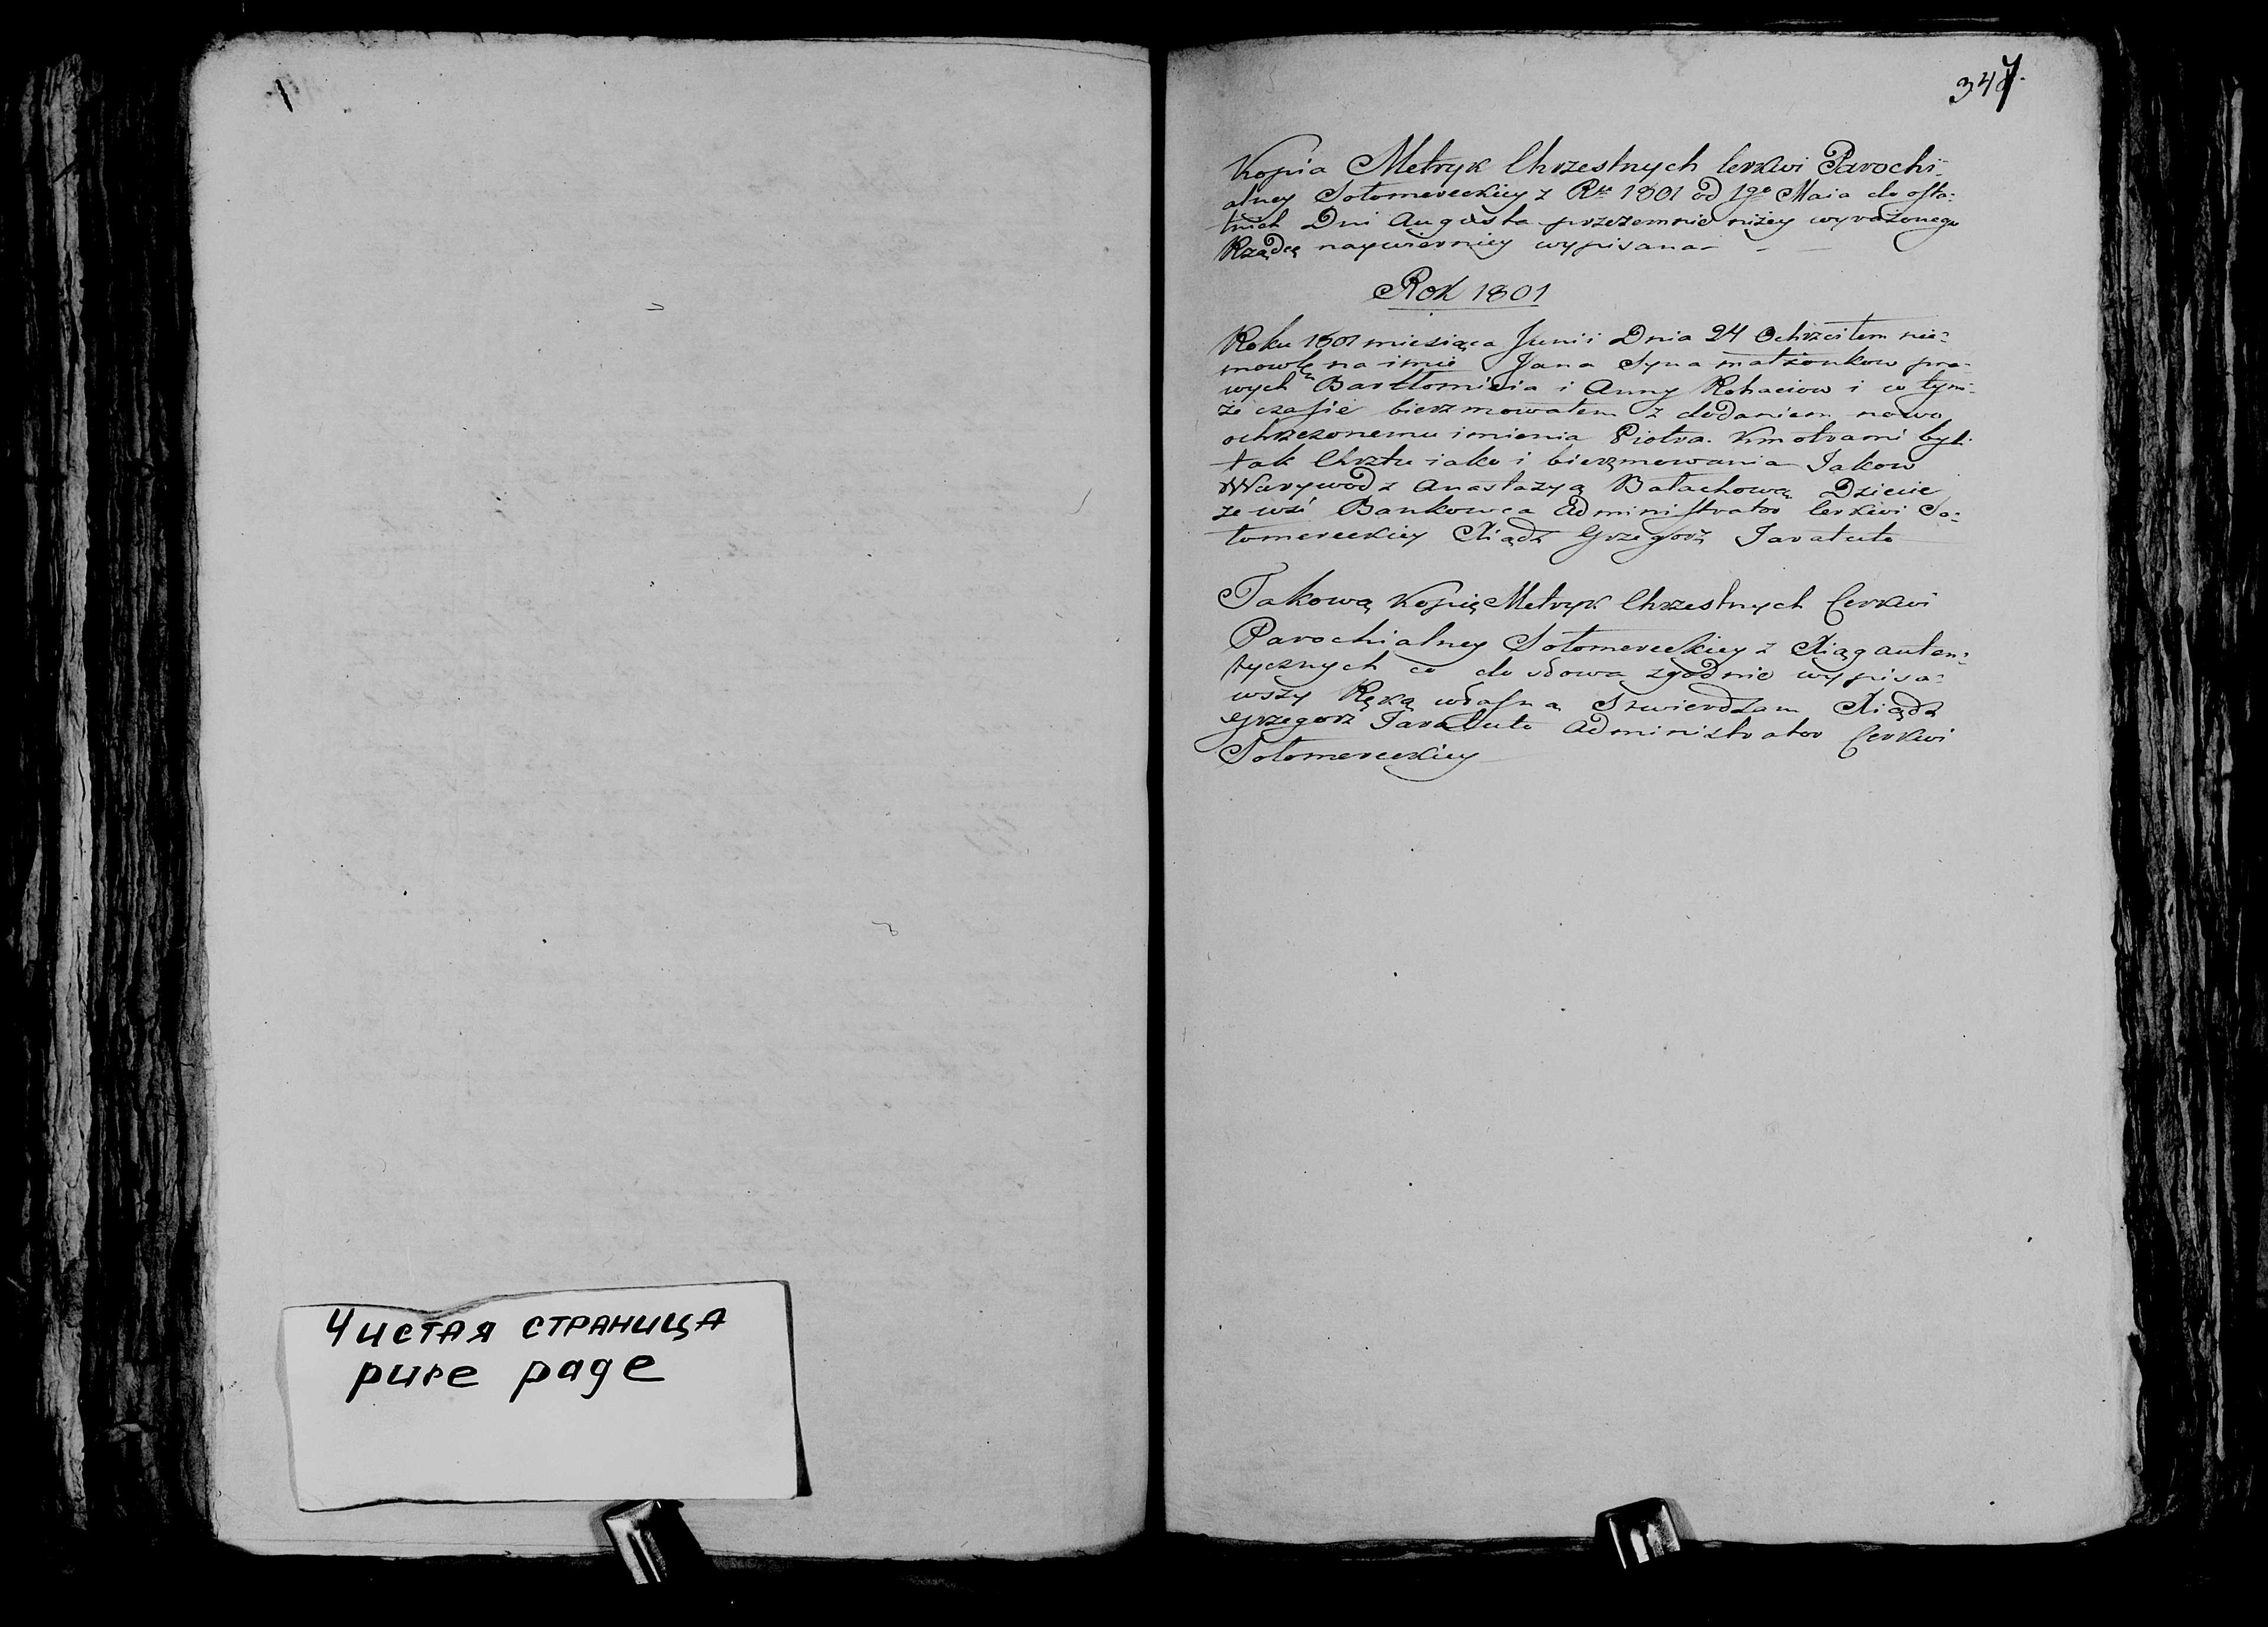 347.
Kopia Metryk Chrzestnych Cerkwi Parochi-
alney Sołomereckiey z Rku 1801 od 1go Maia do osta-
tnich Dni Augusta przezemnie niżey wyrażonego
Rządcę naywierniey wypisana
Rok 1801
Roku 1801 miesiąca Junii Dnia 24 Ochrzciłem nie-
mowlę na imie Jana Syna małżonkow pra-
wych Bartłomieia i Anny Rohaciow i w tym-
że czasie bierzmowałem z dodaniem nowo
ochrzczonemu imienia Piotra. Kmotrami byli
tak Chrztu iako i bierzmowania Jakow
Warywod z Anastazyą Bałachową Dziecie
ze wsi Bankowca Administrator Cerkwi So-
łomereckiey Xiądz Grzegorz Jarałuto
Takową Kopią Metryk Chrzestnych Cerkwi
Parochialney Sołomereckiey z Xiąg auten-
tycznych co do słowa zgodnie wypisa-
wszy Ręką własną Stwierdzam Xiądz
Grzegorz Jarałuto Administrator Cerkwi
Sołomereckiey
Чистая страница
pure page